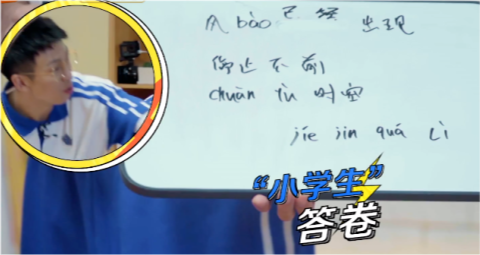 风bào已经 出现
停止不前
chuān yuè 时空
jié jìn quá lì
“小学生”
答卷